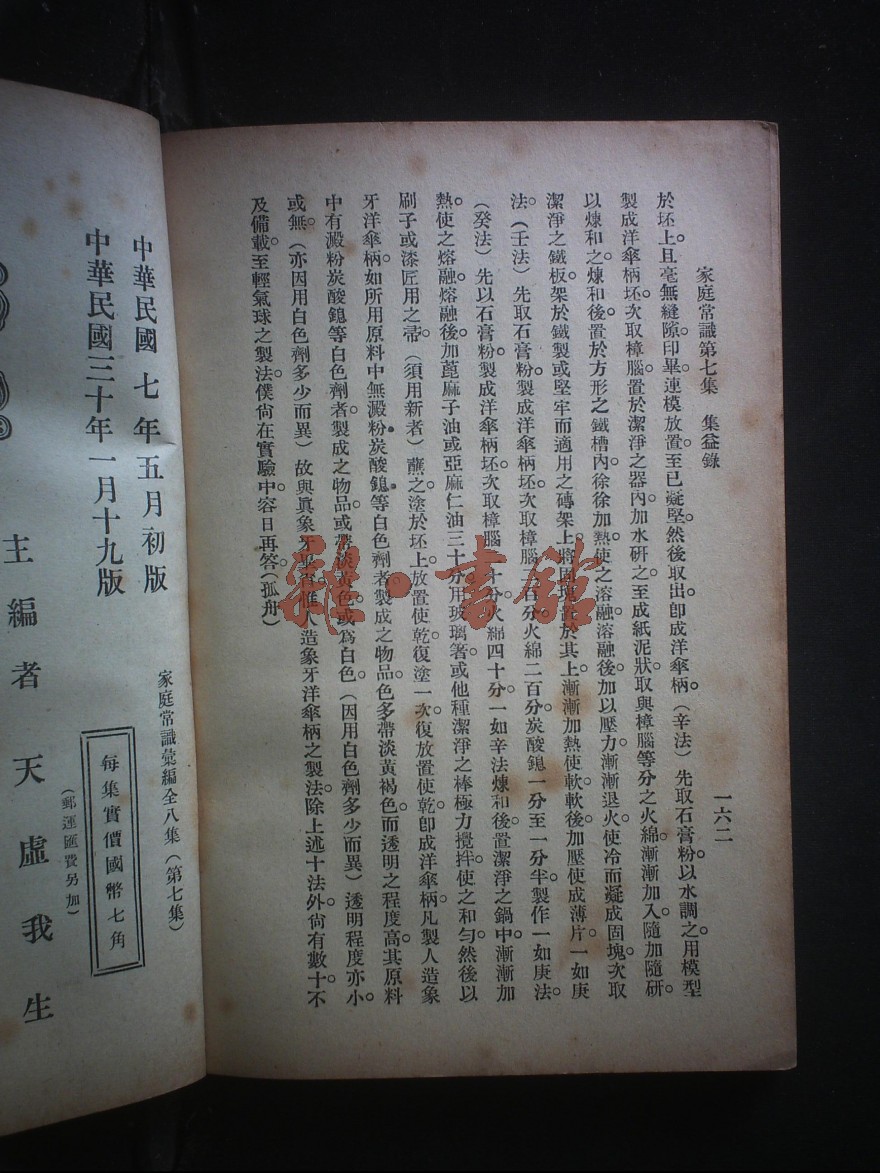 家庭常識第七集　集益錄
一六二
於坯上。且毫無縫隙。印畢連模放置。至已凝堅。然後取出。卽成洋傘柄。（辛法）先取石膏粉以水調之。用模型
製成洋傘柄坯。次取樟腦。置於潔淨之器內。加水硏之。至成紙泥狀。取與樟腦等分之火綿。漸漸加入。隨加隨硏。
以煉和之。煉和後。置於方形之鐵槽內。徐徐加熱。使之溶融。溶融後。加以壓力。漸漸退火。使冷而凝成固塊。次取
潔淨之鐵板。架於鐵製或堅牢而適用之磚架上。將固塊置於其上。漸漸加熱使軟。軟後加壓。使成薄片。一如庚
法。（壬法）先取石膏粉製成洋傘柄坯。次取樟腦一百分。火綿二百分。炭酸鎴一分至一分半。製作一如庚法。
（癸法）先以石膏粉製成洋傘柄坯。次取樟腦二十分。火綿四十分。一如辛法煉和後。置潔淨之鍋中。漸漸加
熱。使之熔融。熔融後。加蓖麻子油或亞麻仁油三十分。用玻璃箸或他種潔淨之棒。極力攪拌。使之和勻。然後以
刷子或漆匠用之帚。（須用新者）蘸之塗於坯上。放置使乾。復塗一次。復放置使乾。卽成洋傘柄。凡製人造象
牙洋傘柄。如所用原料中無澱粉炭酸鎴等白色劑者。製成之物品。色多帶淡黃褐色。而透明之程度高。其原料
中有澱粉炭酸鎴等白色劑者。製成之物品。或帶淡黃色。或爲白色。（因用白色劑多少而異）透明程度亦小。
或無。（亦因用白色劑多少而異）故與眞象牙
人造象牙洋傘柄之製法。除上述十法外。尙有數十。不
及備載。至輕氣球之製法。僕尙在實驗中。容日再答。（孤舟）
雜·書館
家庭常識彙編全八集（第七集）
中華民國七年五月初版
中華民國三十年一月十九版
每集實價國幣七角
（郵運匯費另加）
主編者　天虛我生